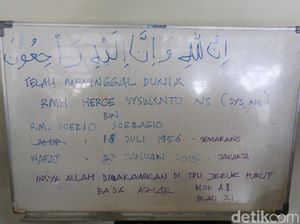 إِنَّا لِلَّٰهِ وَإِنَّا إِلَيْهِ رَاجِعُونَ
TELAH MENINGGAL DUNIA
RMH HEROE SYSWANTO NS (SYS NS)
BIN
R.M. SOERIO SOEBAGIO
LAHIR : 18 JULI 1956 - SEMARANG
WAFAT : 23 JANUARI 2018 - JAKARTA
INSYA ALLAH DIMAKAMKAN DI TPU JERUK PURUT
BADA ASHAR BLOK A II
BLAD 21
detikcom